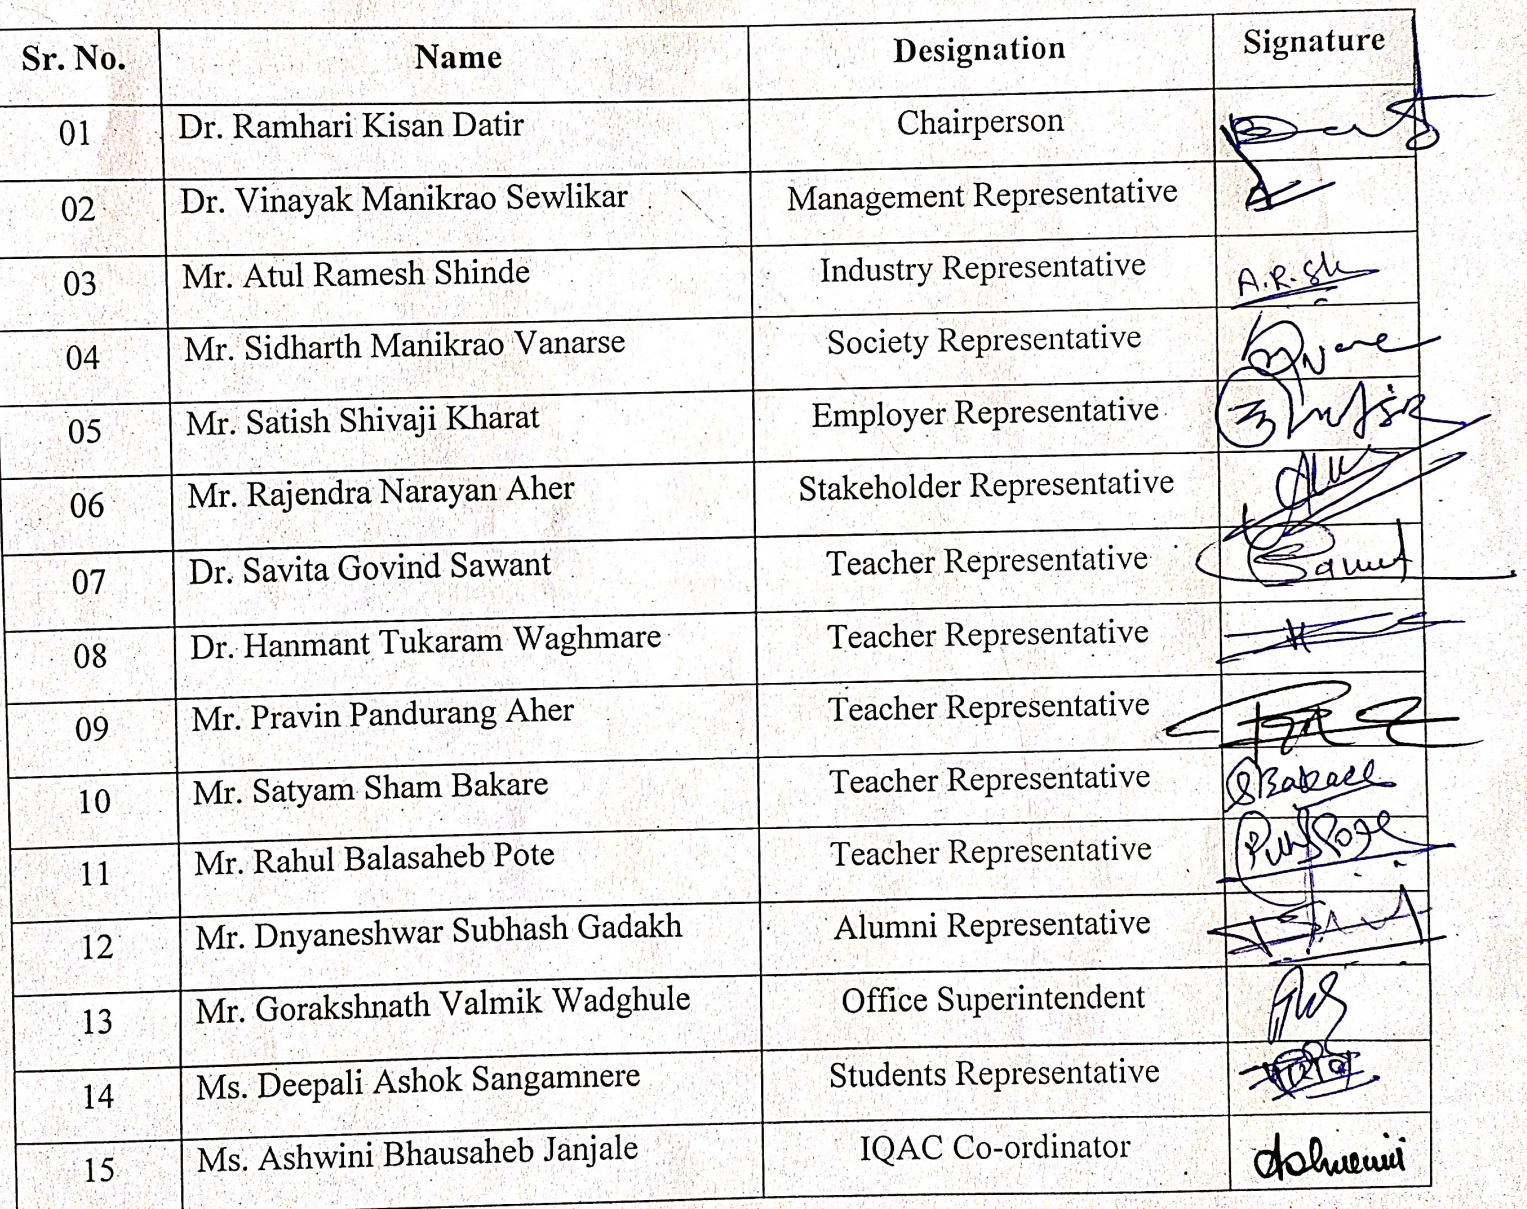 Sr. No. Name Designation Signature
01 Dr. Ramhari Kisan Datir Chairperson
02 Dr. Vinayak Manikrao Sewlikar Management Representative
03 Mr. Atul Ramesh Shinde Industry Representative A.R.Sh
04 Mr. Sidharth Manikrao Vanarse Society Representative
05 Mr. Satish Shivaji Kharat Employer Representative
06 Mr. Rajendra Narayan Aher Stakeholder Representative
07 Dr. Savita Govind Sawant Teacher Representative
08 Dr. Hanmant Tukaram Waghmare Teacher Representative
09 Mr. Pravin Pandurang Aher Teacher Representative
10 Mr. Satyam Sham Bakare Teacher Representative SBakare
11 Mr. Rahul Balasaheb Pote Teacher Representative
12 Mr. Dnyaneshwar Subhash Gadakh Alumni Representative
13 Mr. Gorakshnath Valmik Wadghule Office Superintendent
14 Ms. Deepali Ashok Sangamnere Students Representative
15 Ms. Ashwini Bhausaheb Janjale IQAC Co-ordinator Ashwini